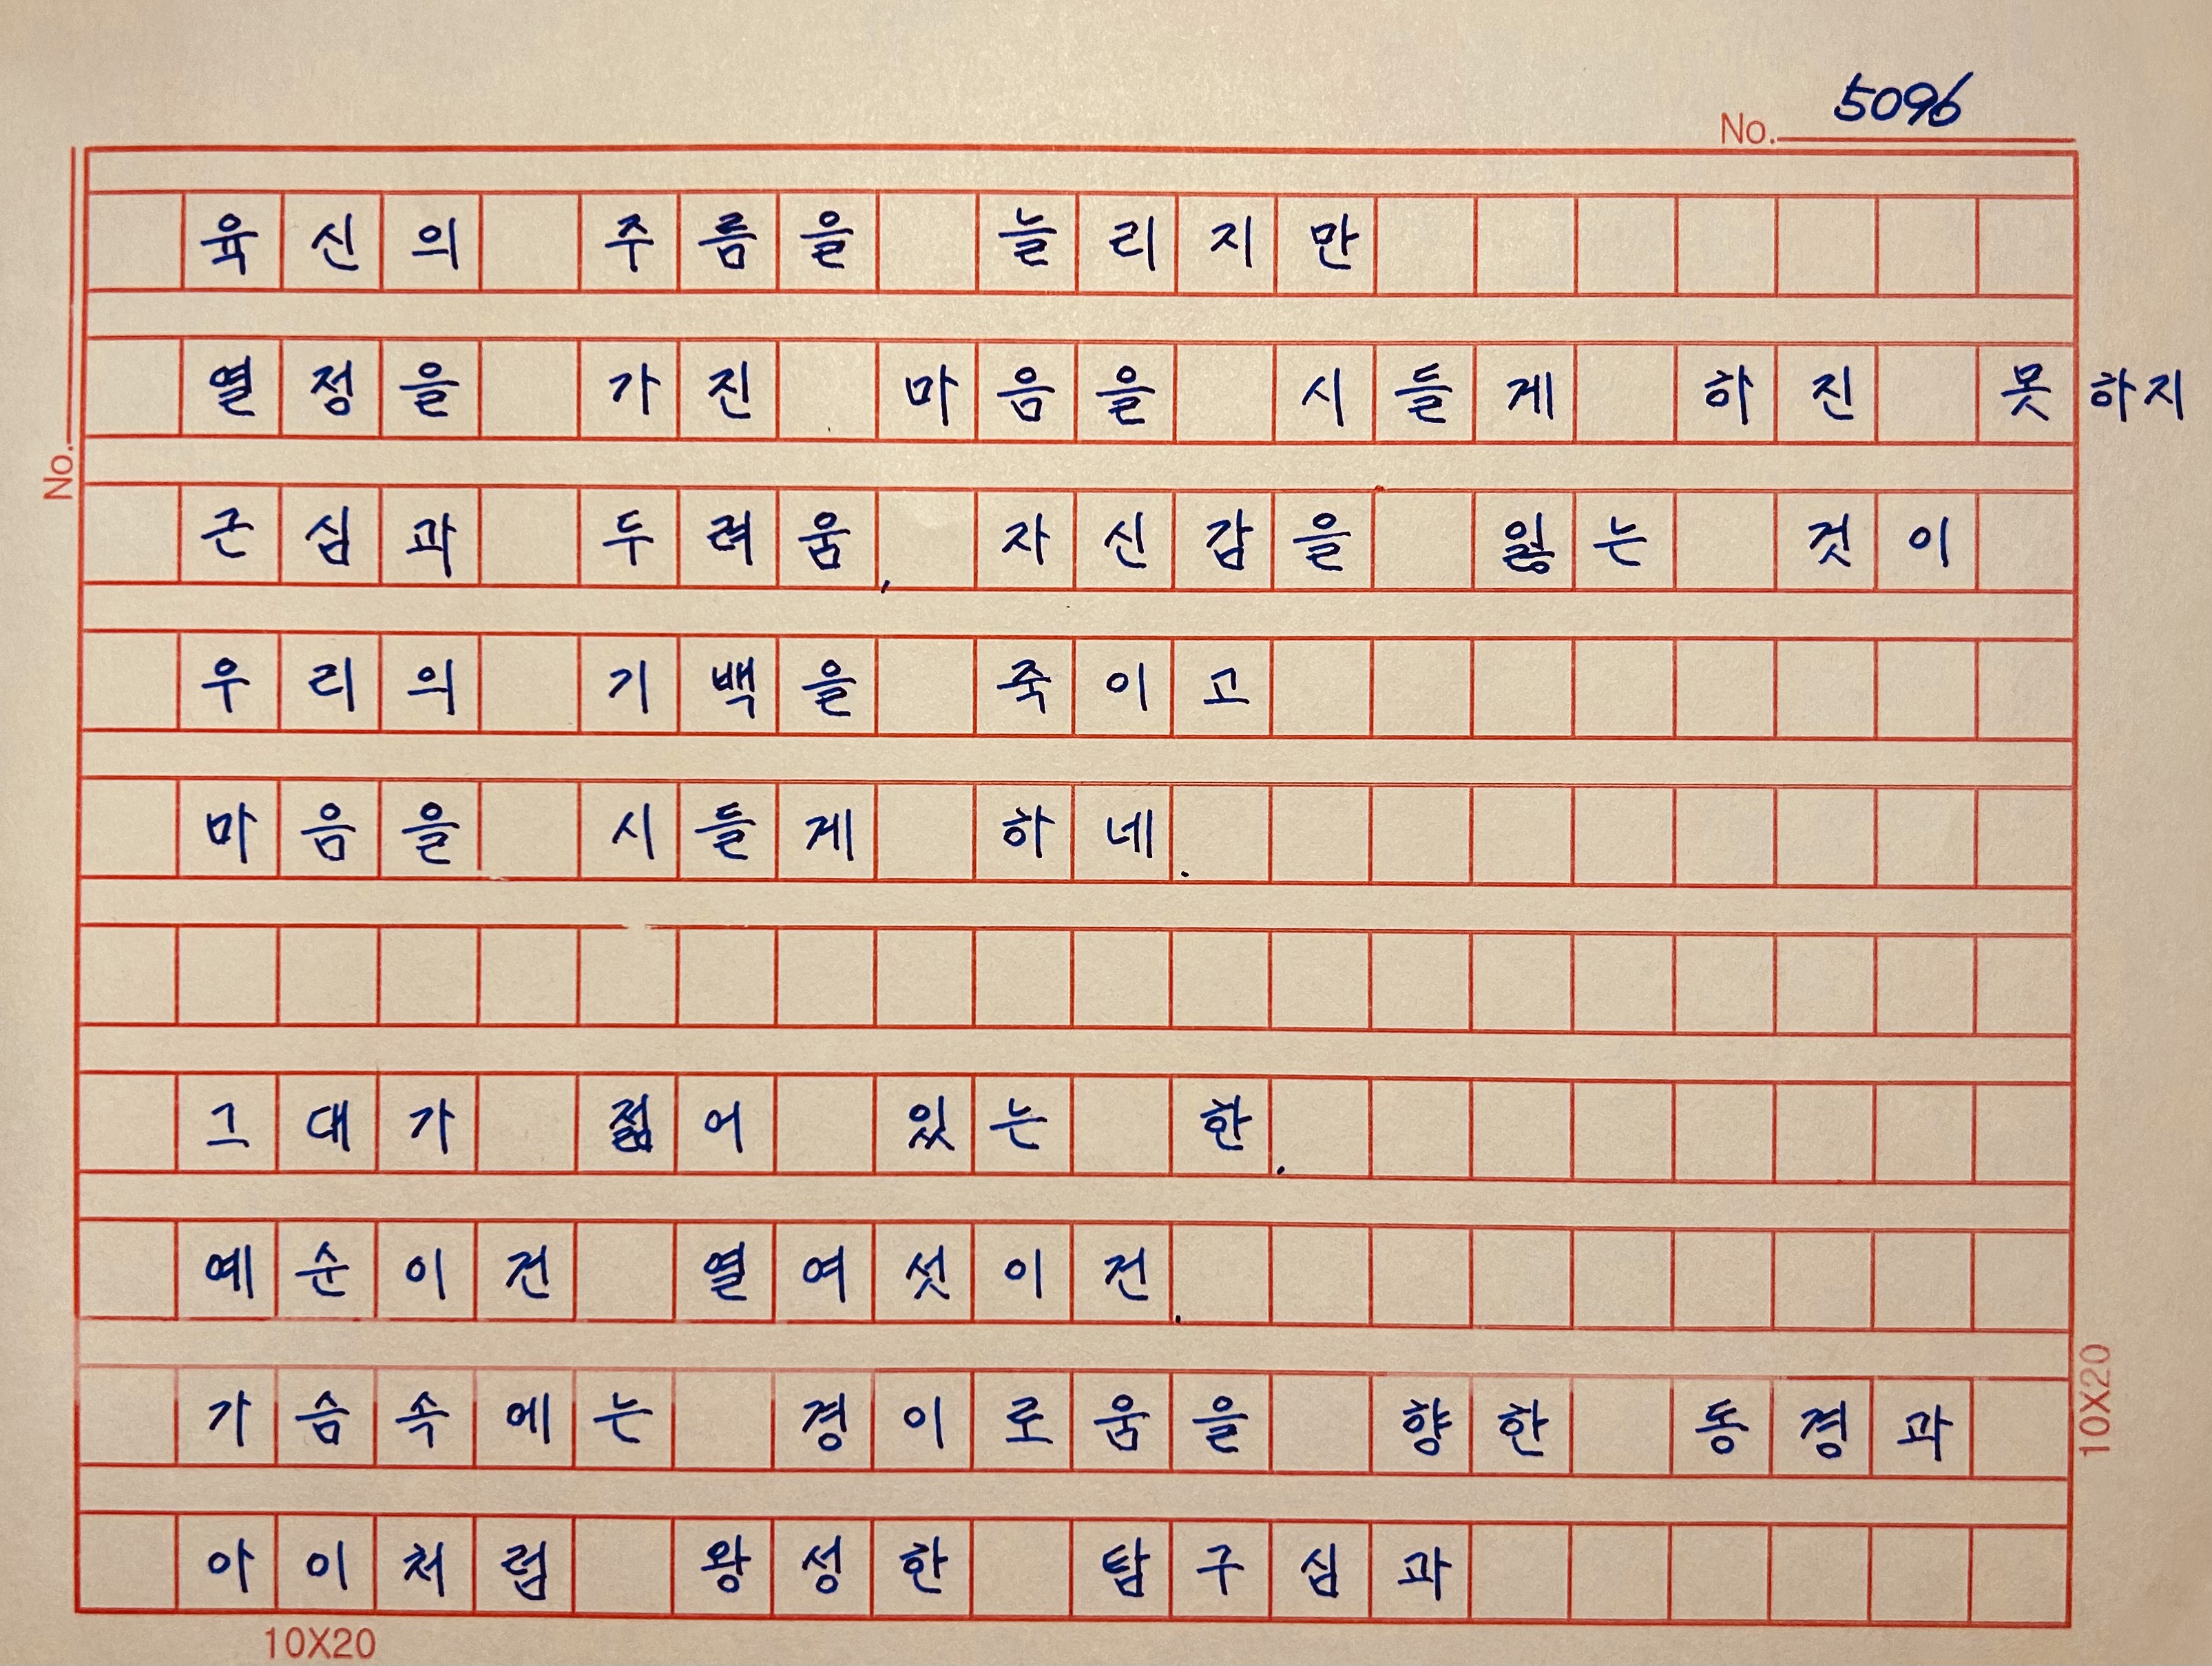 No. 5096
육신의 주름을 늘리지만
열정을 가진 마음을 시들게 하진 못하지
근심과 두려움, 자신감을 잃는 것이
우리의 기백을 죽이고
마음을 시들게 하네.
그대가 젊어 있는 한.
예순이건 열여섯이건.
가슴속에는 경이로움을 향한 동경과
아이처럼 왕성한 탐구심과
No.
10X20
10X20